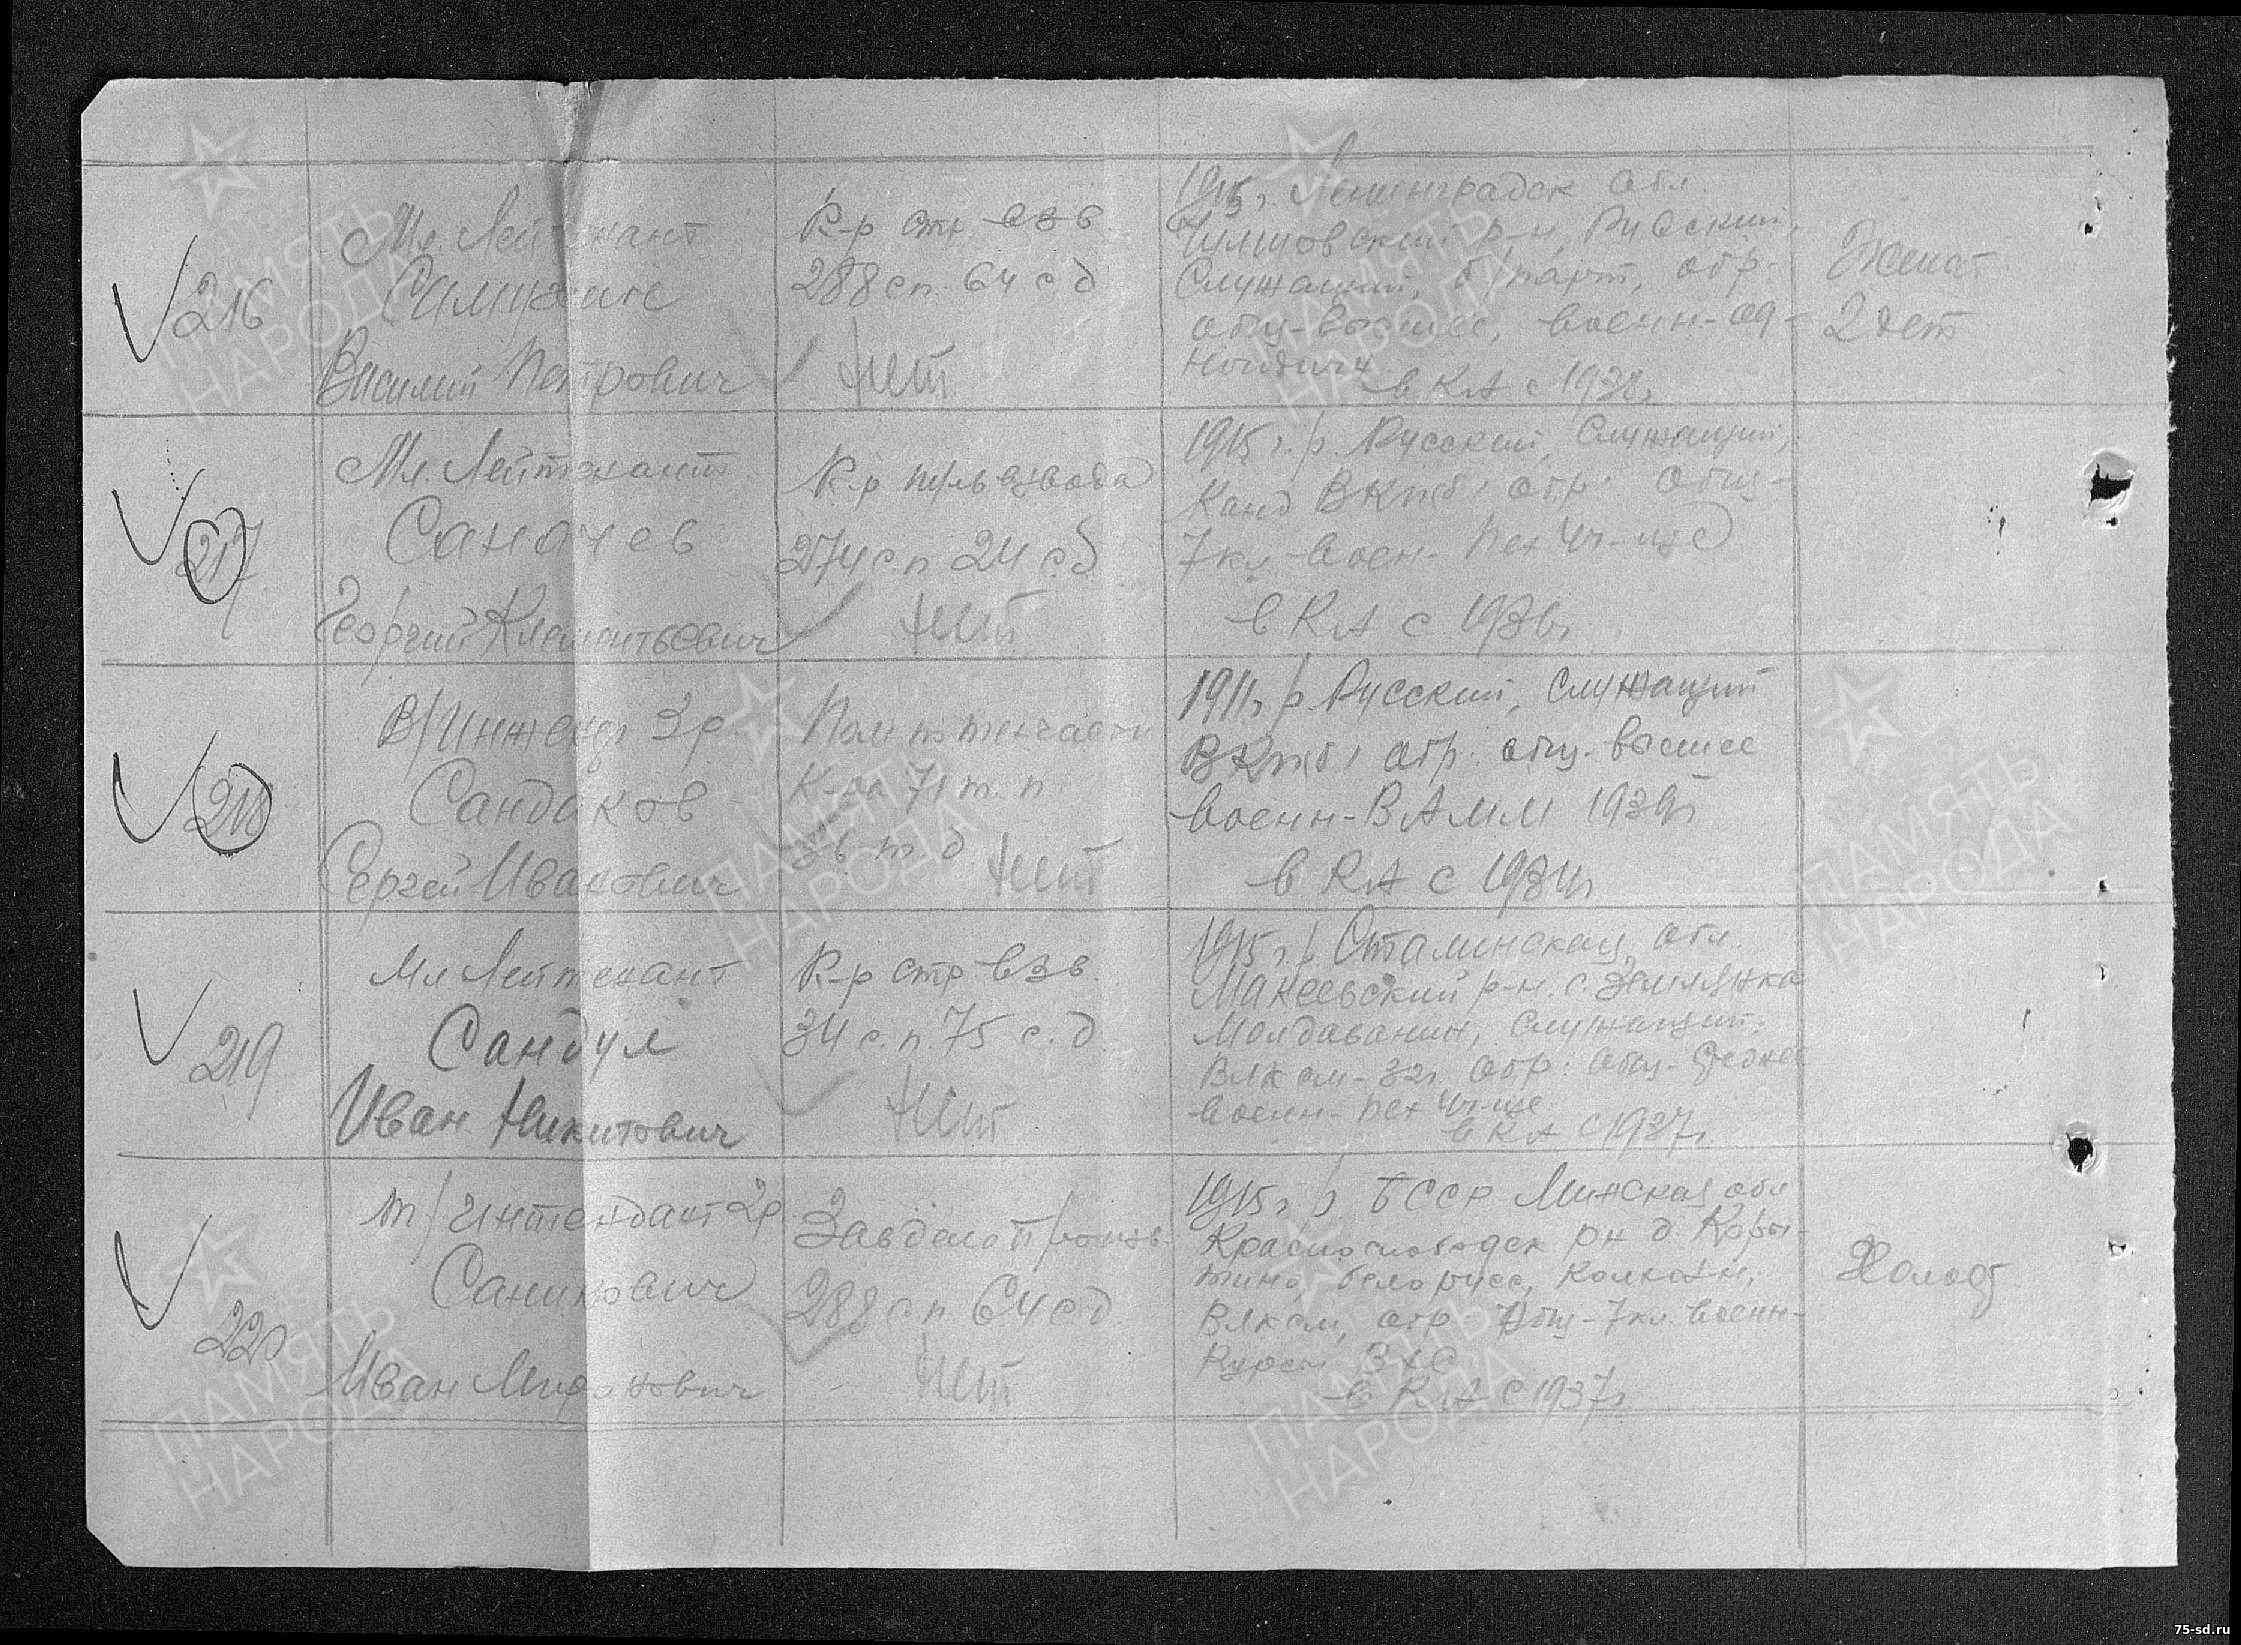 216
Мл. Лейтенант
Самихин
Василий Петрович
К-р стр. взв.
288 сп. 64 с д
Нет
1915 г. Ленинградск обл.
р-н, Русский,
Служащий, б/парт, обр.
общ-высшее, военн-од-
в КА с 1938г
Женат
2 дет
217
Мл. Лейтенант
Саначев
Георгий Клементьевич
К-р пуль взвода
274 с.п 24 с.д
Нет
1915 г./р. Русский, Служащий,
Канд ВКП(б) обр. Общ-
7кл-воен- Пех Уч-ще
в КА с 1936г
218
В/Инженер 3р
Сандаков
Сергей Иванович
Пом по техчасти
К-ра 71 т. п.
т д
Нет
1911г/р Русский, служащий
ВКП(б) обр: общ-высшее
военн-ВАММ 1939г
в КА с 1931г
219
Мл Лейтенант
Сандул
Иван Никитович
К-р стр взв.
34 с.п. 75 с.д
Нет
1915г./р Сталинская обл.
Макеевский р-н. с. Землянка
Молдаванин, Служащий,
Влксм-32г Обр: Общ-Среднее
военн-пех Уч-ще
в КА с 1937г
220
т/интендант 2р
Саникович
Иван Миронович
Завделопроизв.
288 с п 64 с д
Нет
1915г/р БССР Минская обл
Краснослободск рн д. Кры-
тино, белорусс, колхозн,
Влксм, обр Общ-7кл военн-
Курсы
в КА с 1937г
Холост
ПАМЯТЬ
НАРОДА
ПАМЯТЬ
НАРОДА
ПАМЯТЬ
НАРОДА
ПАМЯТЬ
НАРОДА
ПАМЯТЬ
НАРОДА
ПАМЯТЬ
НАРОДА
75-sd.ru